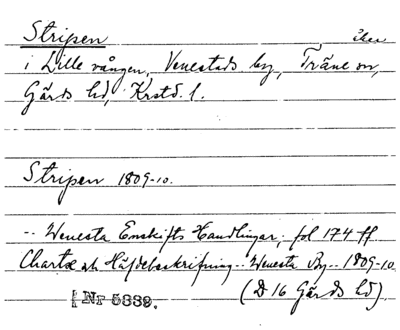 Stripen åker
i Lille vången, Venestads by, Träne sn,
Gärds hd, Krstd. l.
Stripen 1809-10.
-- Wenesta Enskifts Handlingar, fol 174 ff
Charta och Häfdebeskrifning -- Wenesta By -- 1809-10
(D 16 Gärds hd)
Nr 5889.